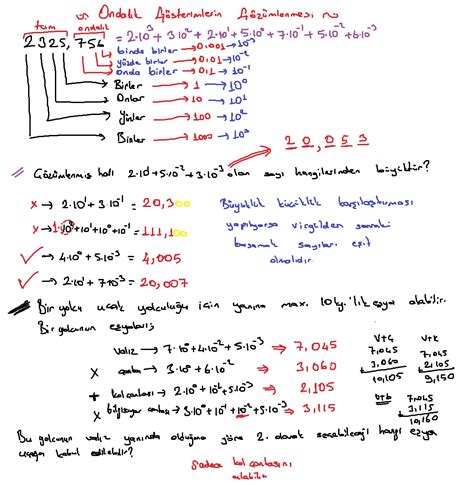 Ondalık Gösterimlerin Çözümlenmesi
tam ondalık
2325,756 = 2·10³ + 3·10² + 2·10¹ + 5·10⁰ + 7·10⁻¹ + 5·10⁻² + 6·10⁻³
binde birler → 0,001 → 10⁻³
yüzde birler → 0,01 → 10⁻²
onda birler → 0,1 → 10⁻¹
Birler → 1 → 10⁰
Onlar → 10 → 10¹
Yüzler → 100 → 10²
Binler → 1000 → 10³
20,053
Çözümlenmiş hali 2·10¹ + 5·10⁻² + 3·10⁻³ olan sayı hangilerinden büyüktür?
x → 2·10¹ + 3·10⁻¹ = 20,300
x → 1·10⁰ + 10¹ + 10⁰ + 10¹ = 111,100
✓ → 4·10⁰ + 5·10⁻³ = 4,005
✓ → 2·10¹ + 7·10⁻³ = 20,007
Büyüklük küçüklük karşılaştırması
yapılıyorsa virgülden sonraki
basamak sayıları eşit
olmalıdır.
Bir yolcu uçak yolculuğu için yanına max. 10 kg'lık eşya alabilir.
Bir yolcunun eşyaları;
valiz → 7·10⁰ + 4·10⁻² + 5·10⁻³ ⇒ 7,045
x çanta → 3·10⁰ + 6·10⁻² ⇒ 3,060
+ kol çantası → 2·10⁰ + 10⁻¹ + 5·10⁻³ ⇒ 2,105
x bilgisayar çantası → 3·10⁰ + 10⁻¹ + 10⁻² + 5·10⁻³ ⇒ 3,115
V+Ç
7,045
3,060
10,105
V+K
7,045
2,105
9,150
V+b
7,045
3,115
10,160
Bu yolcunun valiz yanında olduğuna göre 2. olarak seçebileceği hangi eşya
uçağa kabul edilebilir?
Sadece kol çantasını
alabilir